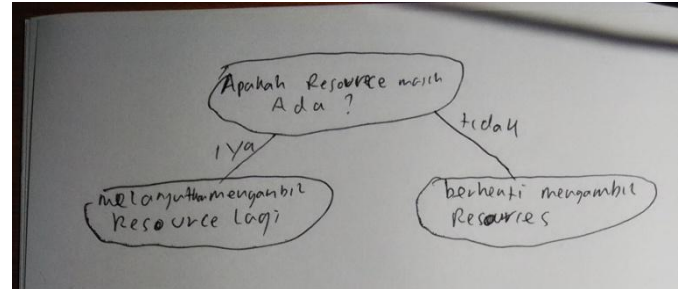 Apakah Resource masih
Ada ?
iya
tidak
melanjutkan mengambil
Resource lagi
berhenti mengambil
Resources